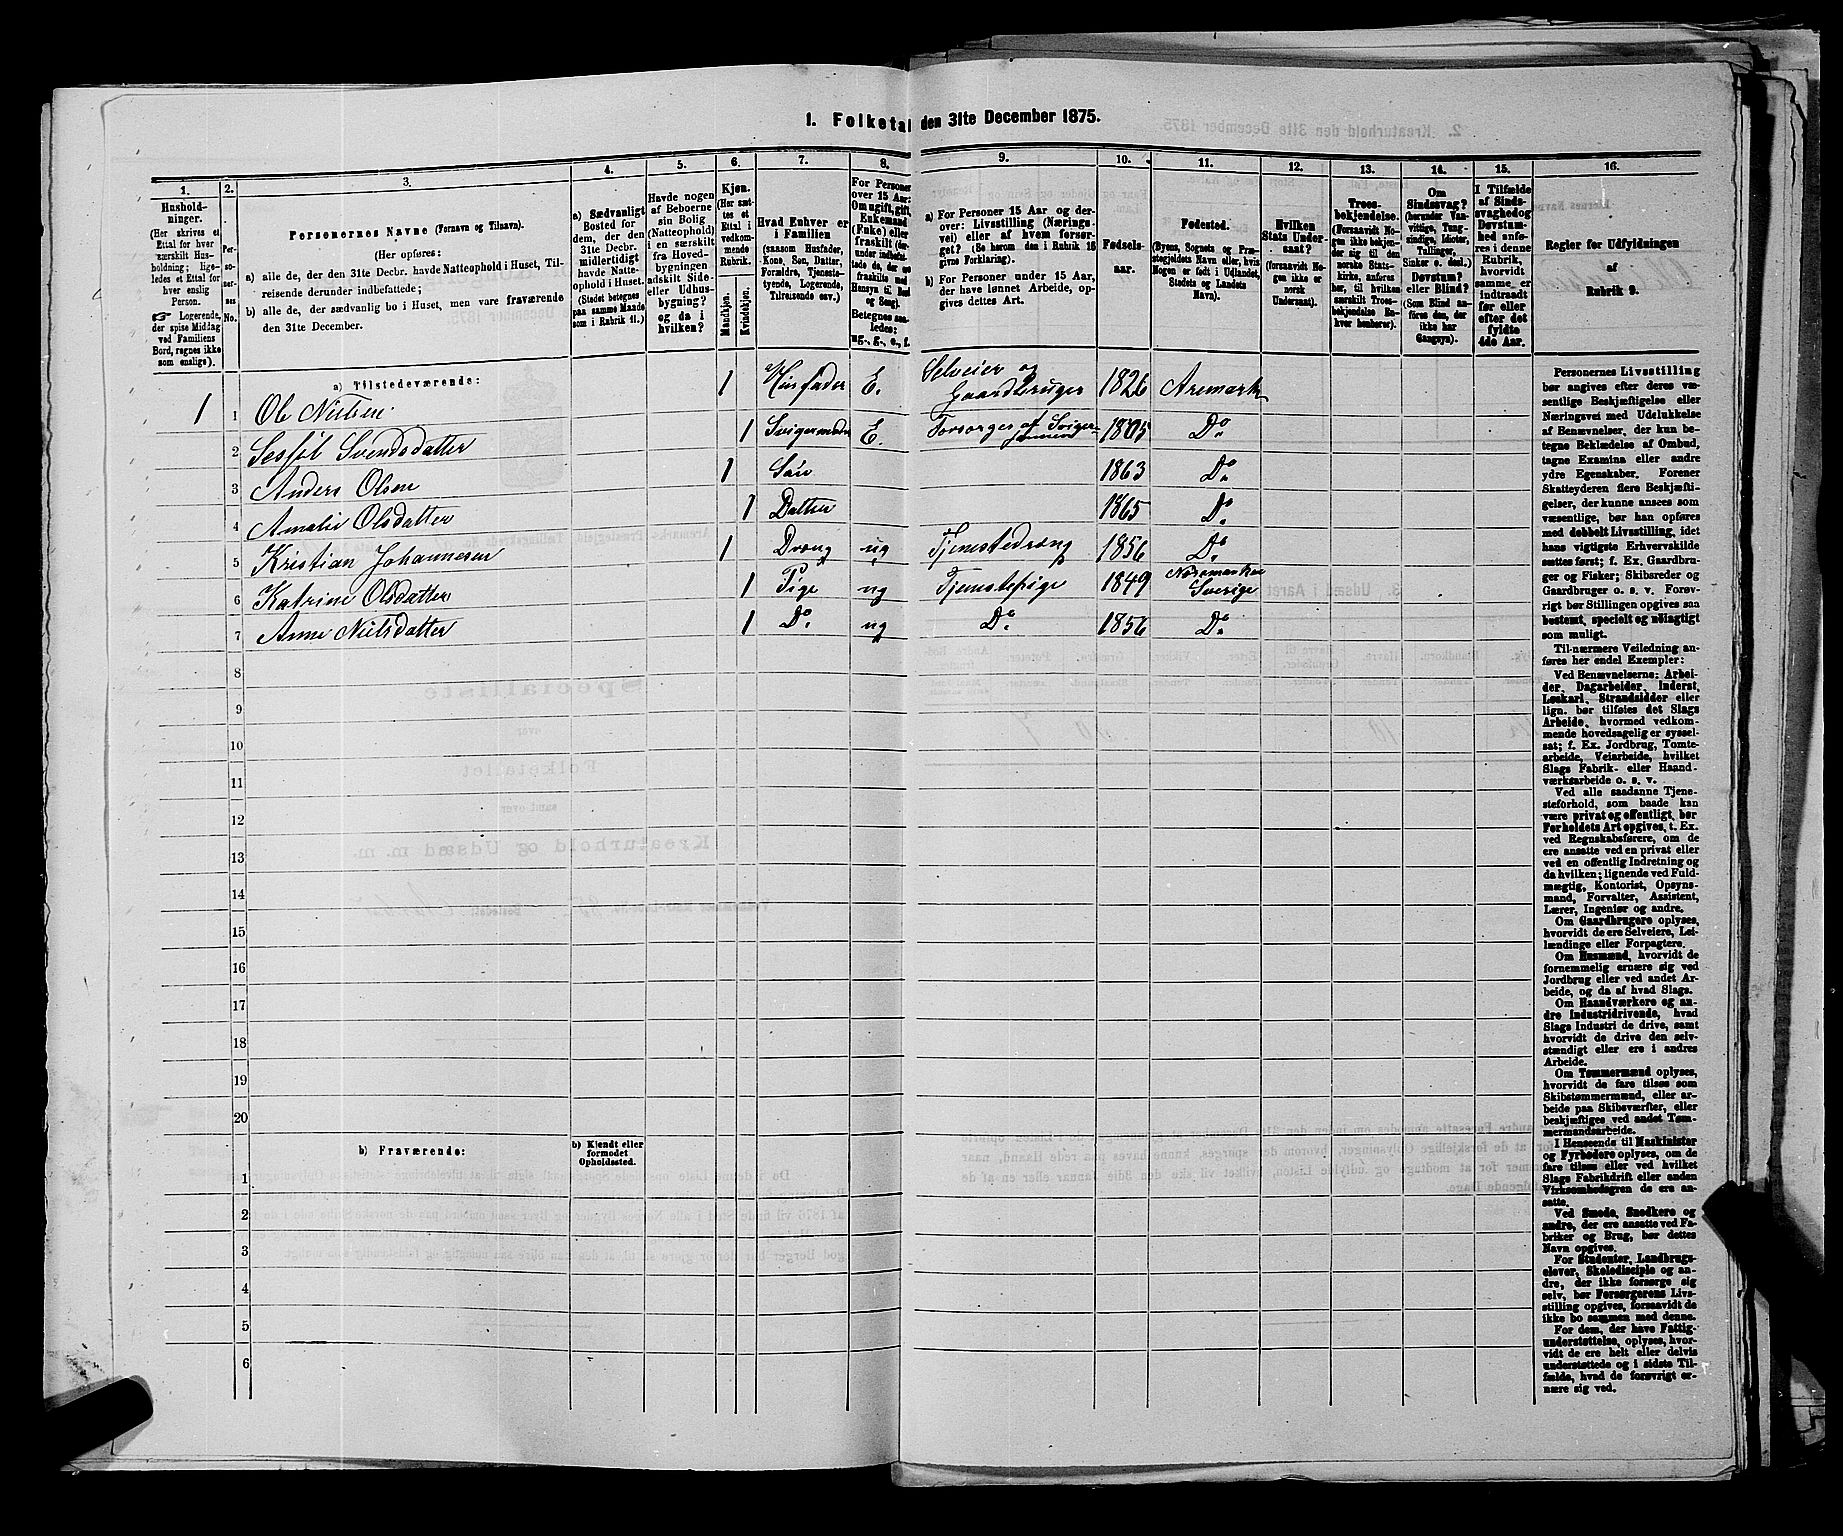 1. Folketal den 31te December 1875.
1. 2. 3. 4. 5. 6. 7. 8. 9. 10. 11. 12. 13. 14. 15. 16.
Husholdninger.
(Her skrives et
Ettal for hver
særskilt Husholdning;
ligeledes et Ettal for
hver enslig
Person.
Logerende,
der spise Middag
ved Familiens
Bord, regnes ikke
som enslige).
Personernes No.
Personernes Navne (Fornavn og Tilnavn).
(Her opføres:
a) alle de, der den 31te Decbr. havde Natteophold i Huset, Tilreisende derunder indbefattede;
b) alle de, der sædvanlig bo i Huset, men vare fraværende
den 31te December.
a) Sædvanligt
Bosted for
dem, der den
31te Decbr.
midlertidigt
havde Natteophold i Huset.
(Stedet betegnes
paa samme Maade
som i Rubrik 11.)
Havde nogen
af Beboerne
sin Bolig
(Natteophold)
i en særskilt
fra Hovedbygningen
adskilt Side-
eller Udhusbygning?
og da i
hvilken?
Kjøn.
(Her sættes et
Ettal i
vedkommende
Rubrik.
Mandkjøn.
Kvindekjøn.
Hvad Enhver er
i Familien
(saasom Husfader,
Kone, Søn, Datter,
Forældre, Tjenestetyende, Logerende,
Tilreisende osv.)
For Personer
over 15 Aar:
Om ugift, gift,
Enkemand
(Enke) eller
fraskilt
Betegnes saaledes:
ug., g., e., f.
a) For Personer 15 Aar og derover: Livsstilling (Næringsvei) eller af hvem forsørget? (Se herom den i Rubrik 16
givne Forklaring).
b) For Personer under 15 Aar,
der have lønnet Arbeide, opgives dettes Art.
Fødselsaar.
Fødested.
(Byens, Sognets og Præstegjeldets Navn eller, hvis
Nogen er født i Udlandet,
Stedets og Landets
Navn).
Hvilken
Stats Undersaat?
(forsaavidt Nogen ikke er
norsk
Undersaat).
Troesbekjendelse.
(Forsaavidt Nogen ikke bekjender sig til den
norske Statskirke, anføres
her, til hvilken
særskilt Troesbekjendelse Enhver henhører).
Om
Sindssvag?
(herunder Vanvittige, Tungsindige, Idioter,
Tullinger,
Sinker o. desl.)
Døvstum?
eller Blind?
(Som Blind anføres den, der
ikke har
Gangsyn).
I Tilfælde
af Sindssvaghed og
Døvstumhed anføres i denne
Rubrik,
hvorvidt
samme er
indtraadt
før eller
efter det
fyldte
4de Aar.
Regler for Udfyldningen
af
Rubrik 9.
a) Tilstedeværende:
1 1 Ole Nielsen 1 Husfader E. Selveier og Gaardbruger 1826 Aremark
2 Svendsdatter 1 Svigermoder E. Forsørges af Svigersønnen 1805 Do
3 Anders Olsen 1 Søn 1863 Do
4 Amalie Olsdatter 1 Datter 1865 Do
5 Kristian Johannesen 1 Dreng ug Tjenestedreng 1856 Do
6 Katrine Olsdatter 1 Pige ug Tjenestepige 1849 Nordmarken Sverige
7 Anne Nielsdatter 1 Do ug Do 1856 Do
8
9
10
11
12
13
14
15
16
17
18
19
20
b) Fraværende:
b) Kjendt eller
formodet
Opholdssted.
1
2
3
4
5
6
Personernes Livsstilling
bør angives efter deres væsentlige Beskjæftigelse eller
Næringsvei med Udelukkelse
af Benævnelser, der kun betegne Beklædelse af Ombud,
tagne Examina eller andre
ydre Egenskaber. Forener
Skatteyderen flere Beskjæftigelser, der kunne ansees som
væsentlige, bør han opføres
med dobbelt Livsstilling, idet
hans vigtigste Erhvervskilde
sættes først; f. Ex. Gaardbruger og Fisker; Skibsreder og
Gaardbruger o. s. v. Forøvrigt bør Stillingen opgives saa
bestemt, specielt og nøiagtigt
som muligt.
Til nærmere Veiledning anføres her endel Exempler:
Ved Benævnelserne: Arbeider, Dagarbeider, Inderst,
Løskarl, Strandsidder eller
lign. bør tilføies det Slags
Arbeide, hvormed vedkommende hovedsagelig er sysselsat; f. Ex. Jordbrug, Tomtearbeide, Veiarbeide, hvilket
Slags Fabrik- eller Haandværksarbeide o. s. v.
Ved alle saadanne Tjenesteforhold, som baade kan
være privat og offentligt, bør
Forholdets Art opgives, t. Ex.
ved Regnskabsførere, om de
ere ansatte ved en privat eller
ved en offentlig Indretning og
da hvilken; lignende ved Fuldmægtig, Kontorist, Opsynsmand, Forvalter, Assistent,
Lærer, Ingeniør og andre.
Om Gaardbrugere oplyses,
hvorvidt de ere Selveiere, Leilændinge eller Forpagtere.
Om Husmænd, hvorvidt de
fornemmelig ernære sig ved
Jordbrug eller ved andet Arbeide, og da af hvad Slags.
Om Haandværkere og andre Industridrivende, hvad
Slags Industri de drive, samt
hvorvidt de drive den selvstændigt eller ere i andres
Arbeide.
Om Tømmermænd oplyses,
hvorvidt de fare tilsøs som
Skibstømmermænd, eller arbeide paa Skibsværfter, eller
beskjæftiges ved andet Tømmermandsarbeide.
I Henseende til Maskinister
og Fyrbødere oplyses, om de
fare tilsøs eller ved hvilket
Slags Fabrikdrift eller anden
Virksomhedsgren de ere ansatte.
Ved Smede, Snedkere og
andre, der ere ansatte ved Fabriker og Brug, bør dettes
Navn opgives.
For Studenter, Landbrugselever, Skoledisciple og andre, der ikke forsørge sig
selv, bør Forsørgerens Livsstilling opgives, forsaavidt de
ikke bo sammen med denne.
For dem, der have Fattigunderstøttelse, oplyses, hvorvidt de ere helt eller delvis
understøttede og i sidste Tilfælde, hvad de forøvrigt ernære sig ved.